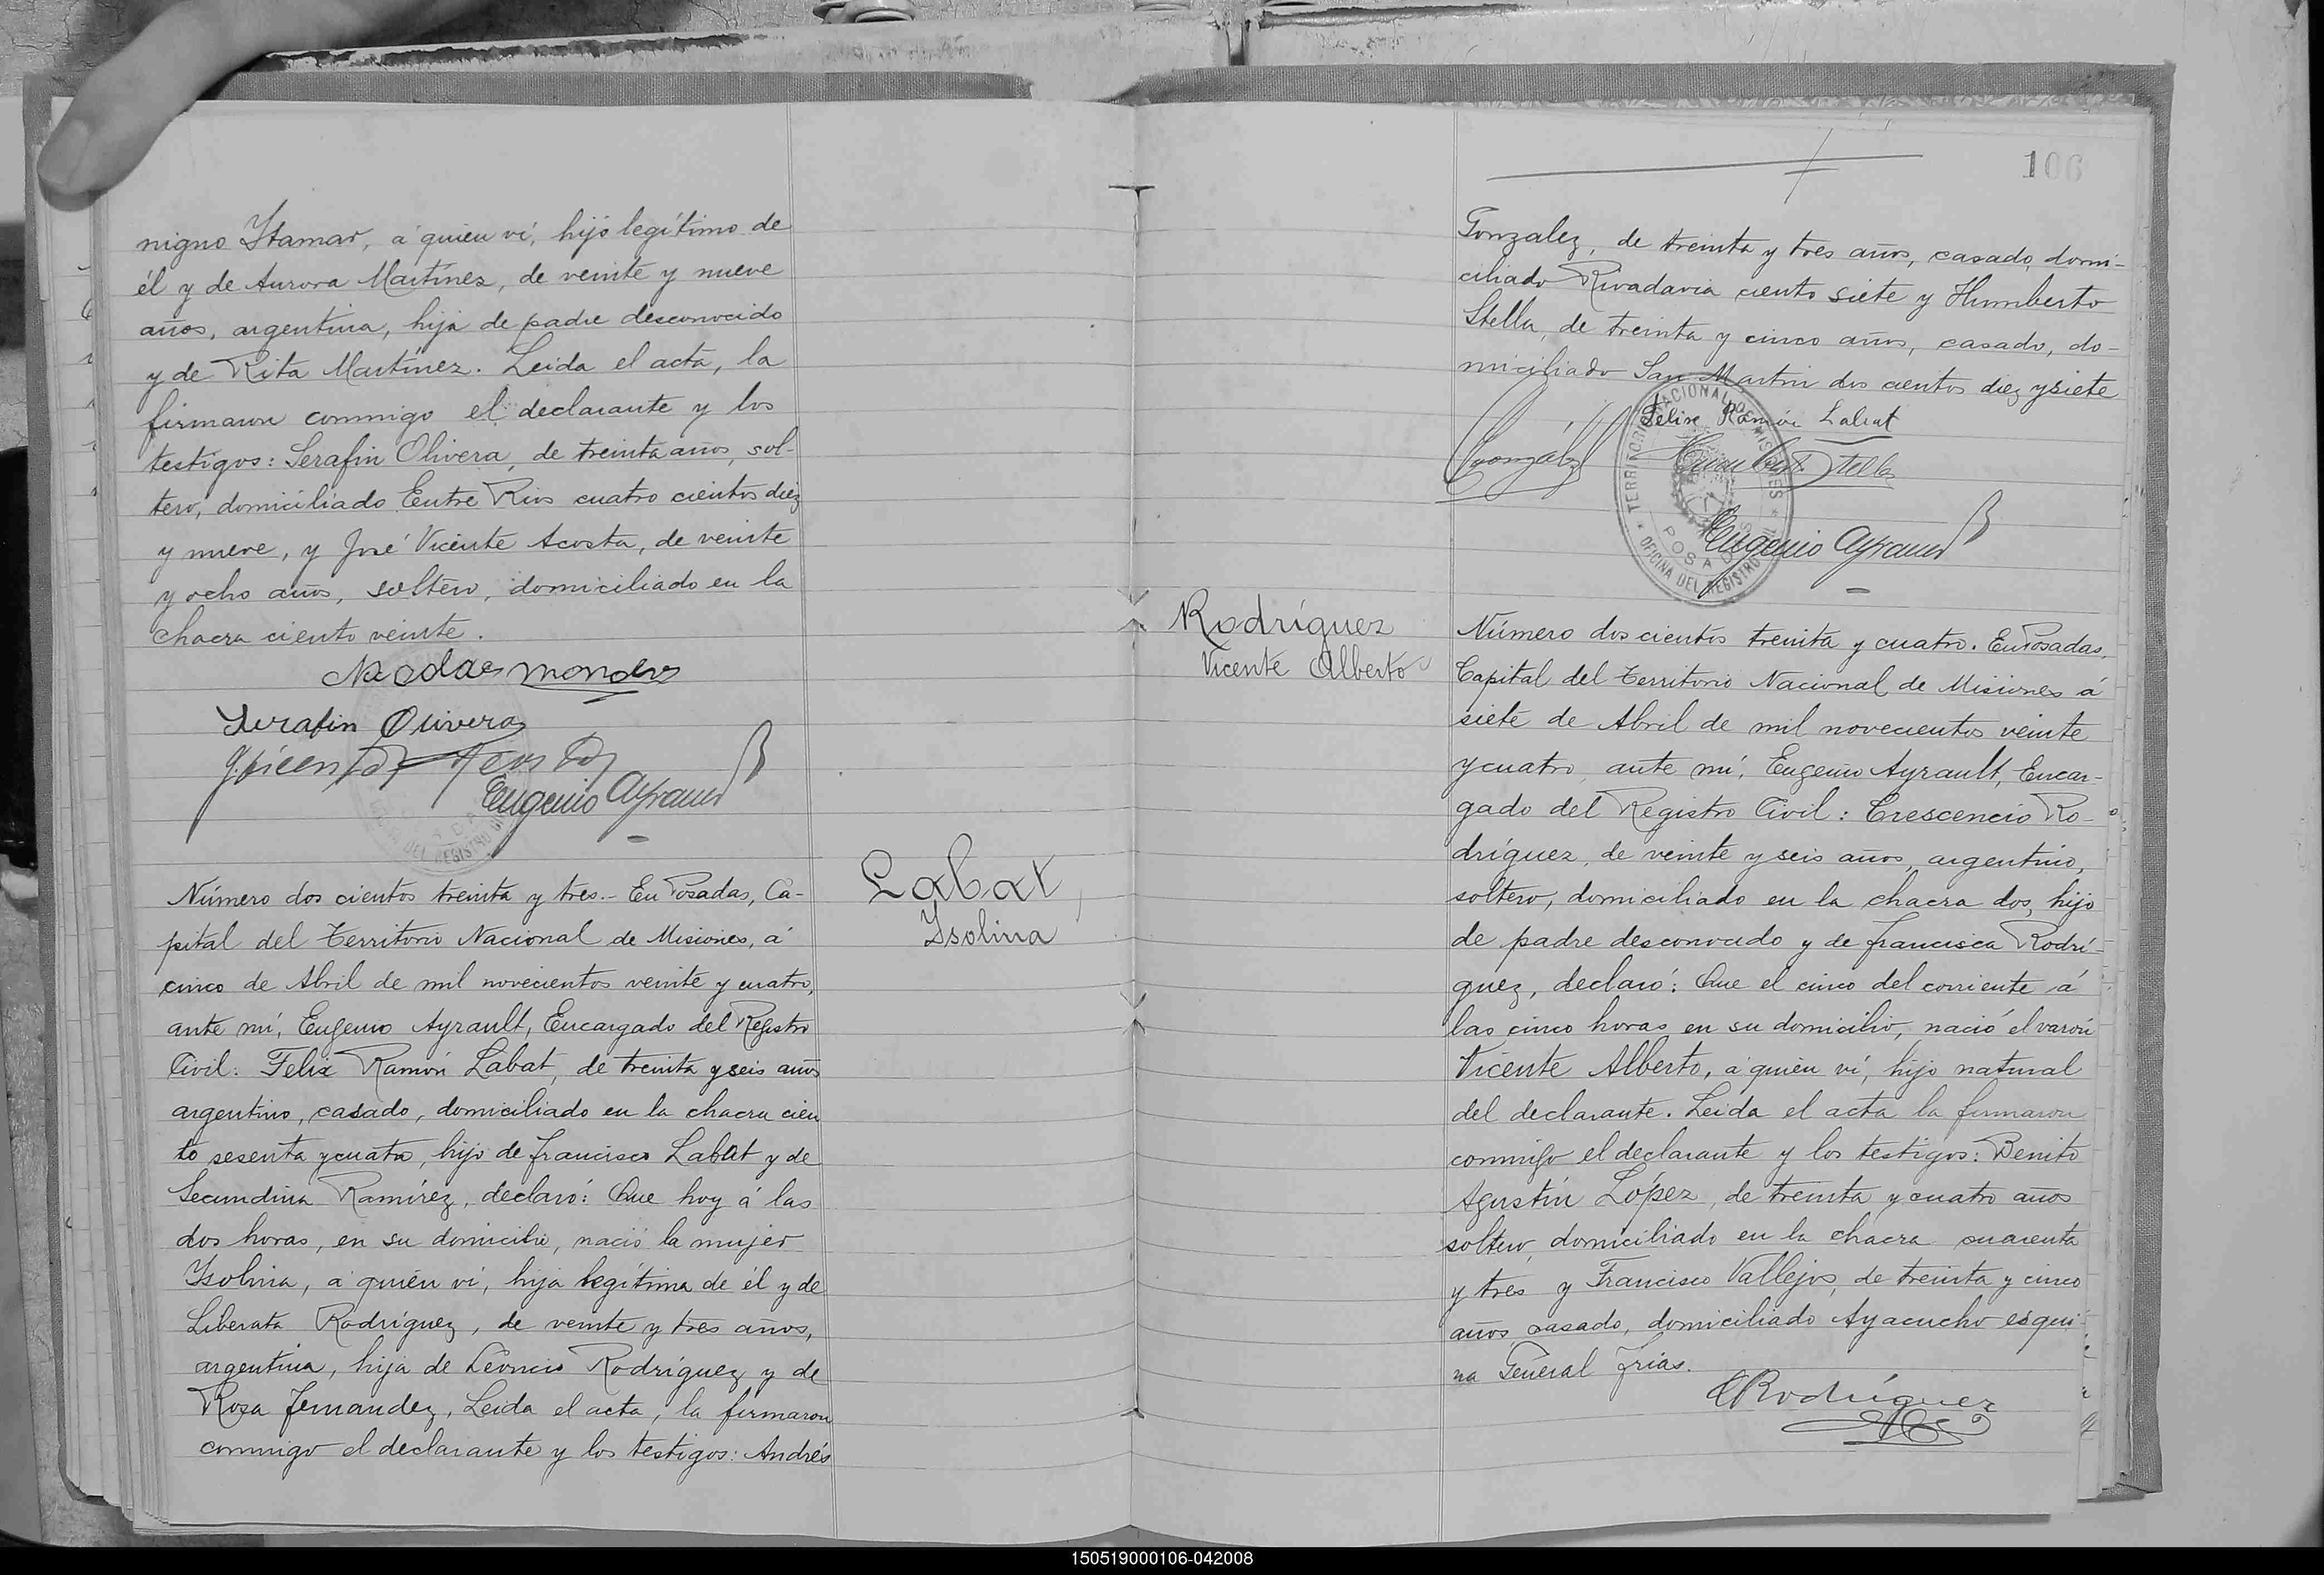 nigno Ytamar, á quien ví, hijo legítimo de
él y de Aurora Martínez, de veinte y nueve
años, argentina, hija de padre desconocido
y de Rita Martínez. Leida el acta, la
firmaron conmigo el declarante y los
testigos: Serafin Olivera, de treinta años, sol-
tero, domiciliado Entre Rios cuatro cientos diez
y nueve, y José Vicente Acosta, de veinte
y ocho años, soltero, domiciliado en la
chacra ciento veinte.
Serafin Olivera
Eugenio Ayrault
Número dos cientos treinta y tres.- En Posadas, Ca-
pital del Territorio Nacional de Misiones, á
cinco de Abril de mil novecientos veinte y cuatro,
ante mí, Eugenio Ayrault, Encargado del Registro
Civil: Felix Ramón Labat, de treinta y seis años
argentino, casado, domiciliado en la chacra cien
to sesenta y cuatro, hijo de Francisco Labat y de
Secundina Ramírez, declaró: Que hoy á las
dos horas, en su domicilio, nació la mujer
Ysolina, á quien ví, hija legítima de él y de
Liberata Rodríguez, de veinte y tres años,
argentina, hija de Leoncio Rodríguez y de
Rosa Fernandez. Leida el acta, la firmaron
conmigo el declarante y los testigos: Andrés
Labat
Ysolina
106
Gonzalez, de treinta y tres años, casado, domi-
ciliado Rivadavia ciento siete y Humberto
Stella, de treinta y cinco años, casado, do-
miciliado San Martin dos cientos diez y siete
Felix Ramón Labat
González Humberto Stella
TERRITORIO NACIONAL DE MISIONES
POSADAS
OFICINA DEL REGISTRO CIVIL
Eugenio Ayrault
Rodríguez
Vicente Alberto
Número dos cientos treinta y cuatro. En Posadas,
Capital del Territorio Nacional de Misiones á
siete de Abril de mil novecientos veinte
y cuatro, ante mí, Eugenio Ayrault, Encar-
gado del Registro Civil: Crescencio Ro-
dríguez, de veinte y seis años, argentino,
soltero, domiciliado en la chacra dos, hijo
de padre desconocido y de Francisca Rodrí-
guez, declaró: Que el cinco del corriente á
las cinco horas, en su domicilio, nació el varón
Vicente Alberto, á quien ví, hijo natural
del declarante. Leida el acta la firmaron
conmigo el declarante y los testigos: Benito
Agustín López, de treinta y cuatro años
soltero, domiciliado en la chacra cuarenta
y tres y Francisco Vallejos, de treinta y cinco
años, casado, domiciliado Ayacucho esqui-
na General Frías.
CRodríguez
150519000106-042008